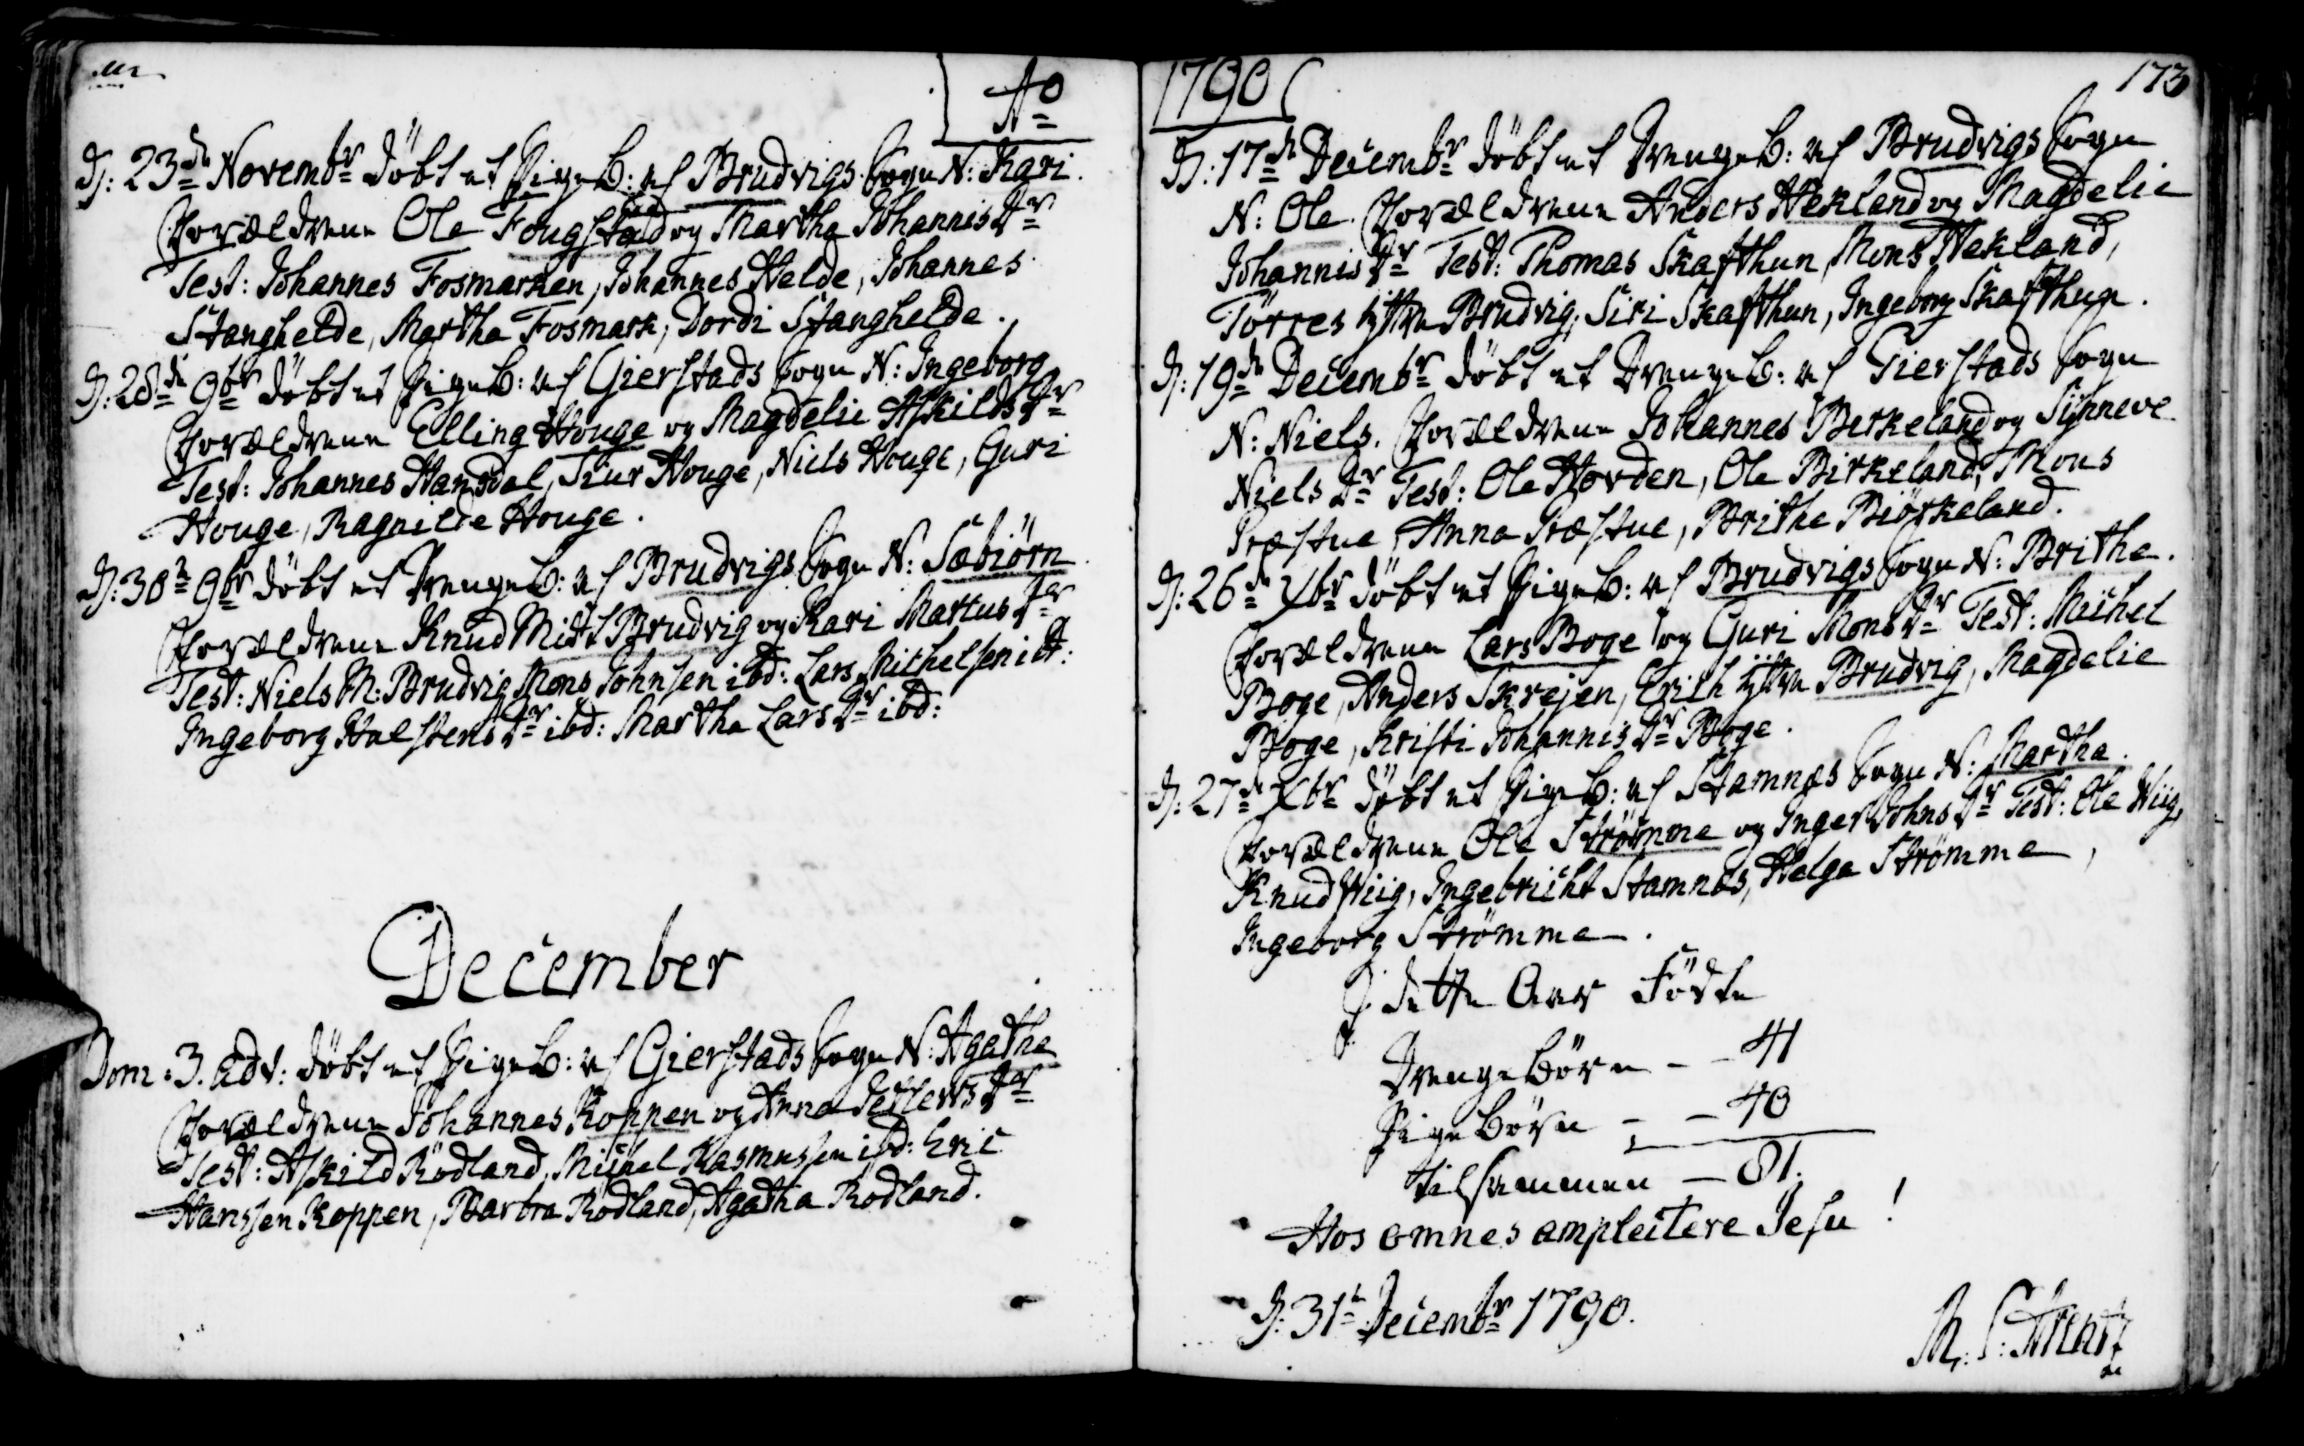 Ao
D: 23de Novembr döbt et Pigeb: af Brudvigs Sogn N: Kari.
Forældrene Ole Fougstad og Martha Johannis Dr
Test: Johannes Fosmarken, Johannes Helde, Johannes
Stanghelde, Martha Fosmark, Dordi Stanghelde.
D: 28de 9br döbt et Pigeb: af Gierstads Sogn N: Ingeborg
Forældrene Elling Houge og Magdelie Askilds Dr
Test: Johannes Hansdal, Siur Houge, Niels Houge, Guri
Houge, Ragnilde Houge.
D: 30te 9br döbt et Drengeb: af Brudvigs Sogn N: Sæbiörn
Forældrene Knud Midt Brudvig og Kari Markus Dr
Test: Niels M: Brudvig Mons Johnsen ibd: Lars Michelsen ibd:
Ingeborg Halstens Dr ibd: Martha Lars Dr ibd:
December
Dom: 3. Adv: döbt et Pigeb: af Gierstads Sogn N: Agathe
Forældrene Johannes Koppen og Anna Detlevs Dr
Test: Askild Rödland, Michel Rasmussen ibd: Eric
Hanssen Koppen, Barbra Rödland, Agatha Rodland.
1790
173
D: 17de Decembr döbt et Drengeb: af Brudvigs Sogn
N: Ole. Forældrene Anders Hekland og Magdelie
Johannis Dr Test: Thomas Skafthun, Mons Hekland,
Törres ytre Brudvig, Siri Skafthun, Ingeborg Skafthun.
D: 19de Decembr döbt et Drengeb: af Gierstads Sogn
N: Niels. Forældrene Johannes Berkeland og Sÿnneve
Niels Dr Test: Ole Hovden, Ole Birkeland, Mons
Præstue, Anna Præstue, Brithe Biörkeland.
D: 26de Xbr döbt et Pigeb: af Brudvigs Sogn N: Brithe.
Forældrene Lars Boge og Guri Mons Dr Test: Michel
Boge, Anders Skrejen, Erich ÿtre Brudvig, Magdelie
Boge, Kristi Johannis Dr Boge.
D: 27de Xbr döbt et Pigeb: af Stamnæs Sogn N: Martha.
Forældrene Ole Strömme og Inger Johns Dr Test: Ole Wiig,
Knud Wiig, Ingebricht Stamnæs, Helga Strömme,
Ingeborg Strömme.
I dette Aar Födte
Drengebörn - - 41
Pigebörn - - 40
tilsammen - 81.
Hos omnes amplectere Jesu!
D: 31te Decembr 1790.